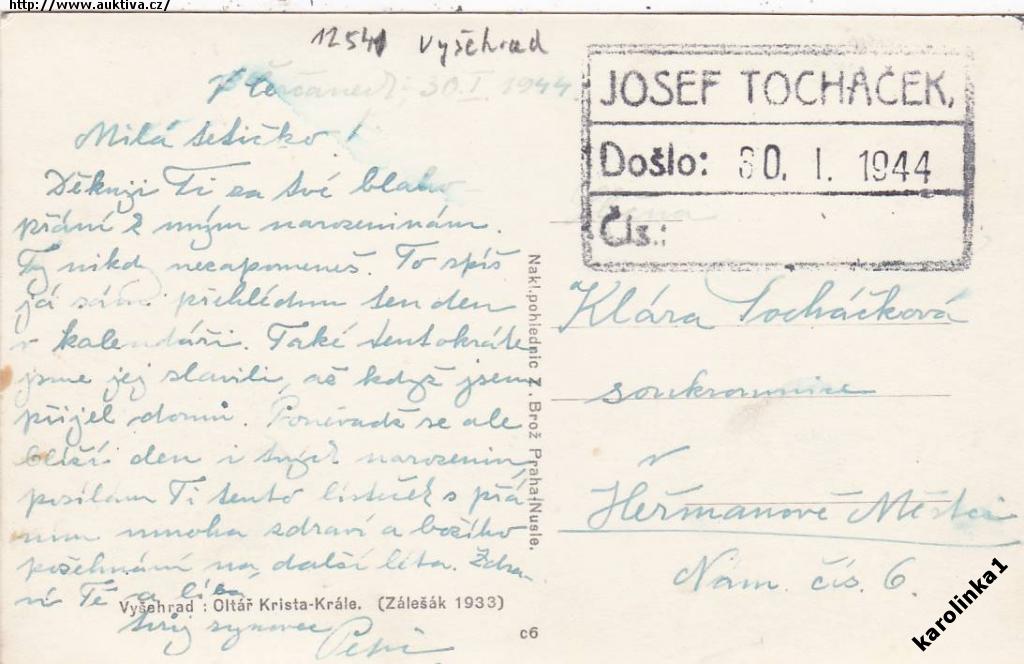 http://www.auktiva.cz/
12541 Vyšehrad
30.I 1944
Milá tetičko!
Děkuji Ti za tvé blaho-
přání k mým narozeninám.
Ty nikdy nezapomeneš. To spíš
já sám přehlédnu ten den
v kalendáři. Také tentokráte
jsme jej slavili, až když jsem
přijel domů. Poněvadž se ale
blíží den i tvých narozenin,
posílám Ti tento lísteček s přá-
ním mnoha zdraví a božího
požehnání na další léta. Zdra-
ví Tě a líbá
tvůj synovec
Petr
Vyšehrad : Oltář Krista-Krále. (Zálešák 1933)
c6
Nakl. pohlednic Z. Brož Praha-Nusle.
JOSEF TOCHÁČEK,
Došlo: 30. I. 1944
Čís.:
Klára Tocháčková
soukromnice
v
Heřmanově Městci
Nám. čís. 6
karolinka1